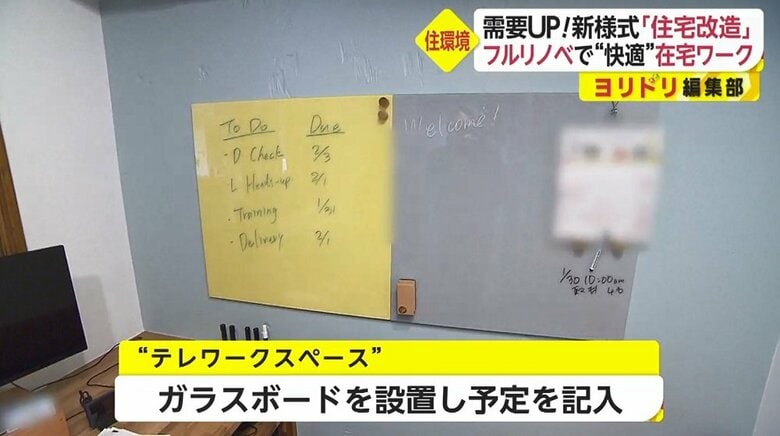 住環境
需要UP!新様式「住宅改造」
フルリノベで“快適”在宅ワーク
ヨリドリ編集部
To Do Due
・D Check 2/3
L Heads-up 2/1
・Training 1/31
・Delivery 2/1
Welcome!
1/30 10:00am
“テレワークスペース”
ガラスボードを設置し予定を記入